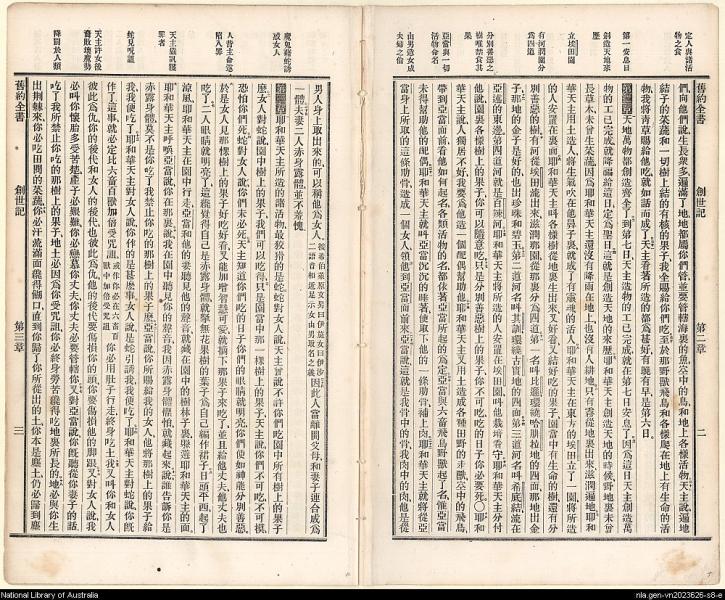 定人與諸活物之食
第一安息日
創造天地來歷
立埃田園
有河潤園分為四道
分別善惡之樹唯禁食其果
亞當與一切活物命名
由男造女成夫婦之倫
舊約全書
創世記
第二章
二
們、向他們說、生長衆多、遍滿了地、地都屬你們管、並要管轄海裏的魚、空中的鳥、和地上各樣活物、天主說、遍地
結子的菜蔬、和一切樹上結的有核的果子、我全賜給你們吃、至於那野獸飛鳥、和各樣爬在地上有生命的活
物、我將青草賜給他吃、就如話而成了、天主看著所造的都爲甚好、有晚有早、是第六日、
第二章 天地萬物都創造齊全了、到第七日、天主造物的工已完成、就在第七日安息了、因爲這日天主創造萬
物的工已完成、就降福給這日、定爲聖日、這就是創造天地的來歷、耶和華天主創造天地的時候、野地裏未曾
長草木、未曾生菜蔬、因爲耶和華天主還沒有降雨在地上、也沒有人耕地、只有霧從地裏出來滋潤遍地、耶和
華天主用土造人、將生氣吹在他鼻子裏、就成了有靈魂的活人、耶和華天主在東方的埃田立了一園、將所造
的人安置在裏面、耶和華天主叫各樣樹從地裏生出來、又好看、又好吃的果子、園當中有生命的樹、還有分
別善惡的樹、有河從埃田流出來、滋潤那園、從那裏分爲四道、第一名叫比遜、環繞哈腓拉地的四面、那地出金
子、那地的金子是好的、也出珍珠和碧玉、第二道河名叫其訓、環繞古實地的四面、第三道河名叫希底結、流在
亞述的東邊、第四道河就是百辣河、耶和華天主將所造的人安置在埃田園、叫他栽培看守、耶和華天主分付
他說、園裏各樣樹上的果子、你可以隨意吃、只是分別善惡樹上的果子、你不可吃、吃的日子你必要死、耶和
華天主說、人獨居不好、我要爲他造一個配偶幫助他、耶和華天主又用土造成各種田野的走獸、空中的飛鳥、
帶到亞當面前、看他如何起名、各類活物的名、都依著亞當所起的爲定、亞當與六畜飛鳥野獸起了名、惟亞當
未得幫助他的配偶、耶和華天主就叫亞當沉沉的睡著、便取下他的一條肋骨、補上肉、耶和華天主就將從亞
當身上所取的這條肋骨、造成一個女人、領他到亞當面前來、亞當說、這就是我骨中的骨、我肉中的肉、他是從
魔鬼藉蛇誘惑女人
人背主命遂陷入罪
天主鞫訊服罪者
蛇見咒詛
天主許女後裔敗壞魔勢
降罰於人類
男人身上取出來的、可以稱他爲女人、因此人當離開父母、和妻子連合成爲
一體、夫妻二人赤身露體、並不羞愧、
第三章 耶和華天主所造的諸活物、最狡猾的是蛇、蛇對女人說、天主豈說不許你們吃園中所有樹上的果子
麼、女人對蛇說、園中樹上的果子、我們可以吃得、只是園當中那一樣樹上的果子、天主說、你們不可吃、不可摸、
恐怕你們死、蛇對女人說、你們未必死、天主知道你們吃的日子、你們的眼睛就明亮、你們便如神能分別善惡、
於是女人見那棵樹上的果子好吃、好看、又能加增智慧可愛、就摘下那果子來吃了、並且給他丈夫、他丈夫也
吃了、二人眼睛就明亮了、這纔覺得自己是赤露身體、就拿無花果樹的葉子、爲自己編作裙子、日頭平西、起了
涼風、耶和華天主在園中行走、亞當和他的妻聽見他的聲音、就藏在園中的樹林子裏、要躱避耶和華天主的面、
耶和華天主呼喚亞當說、你在那裏、說、我在園中聽見你的聲音、我因赤露身體懼怕、就藏起來、說、誰告訴你是
赤露身體、莫不是你吃了我禁止你吃的那樹上的果子麼、亞當說、你所賜給我的女人、他將那樹上的果子給
我、我便吃了、耶和華天主對女人說、你作的是甚麼事、女人說、是蛇引誘我、我便吃了、耶和華天主對蛇說、你旣
作了這事、就必定比六畜百獸加倍受咒詛、你必用肚子行走、終身吃土、我又叫你和女人
彼此爲仇、你的後代和女人的後代也彼此爲仇、他的後代要傷損你的頭、你要傷損他的脚跟、又對女人說、我
必叫你懷胎多受苦楚、產子必艱難、你必戀慕丈夫、你丈夫必要管轄你、又對亞當說、你旣聽從你妻子的話、
吃了我所禁止你吃的那樹上的果子、地土必因爲你受咒詛、你必終身勞苦纔得吃地裏所長的、地必與你生
出荆棘來、你必吃田間的菜蔬、你必汗流滿面纔得餬口、直到你歸了你所從出的土、你本是塵土、仍必歸到塵
舊約全書
創世記
第三章
三
National Library of Australia
nla.gen-vn2023626-s8-e